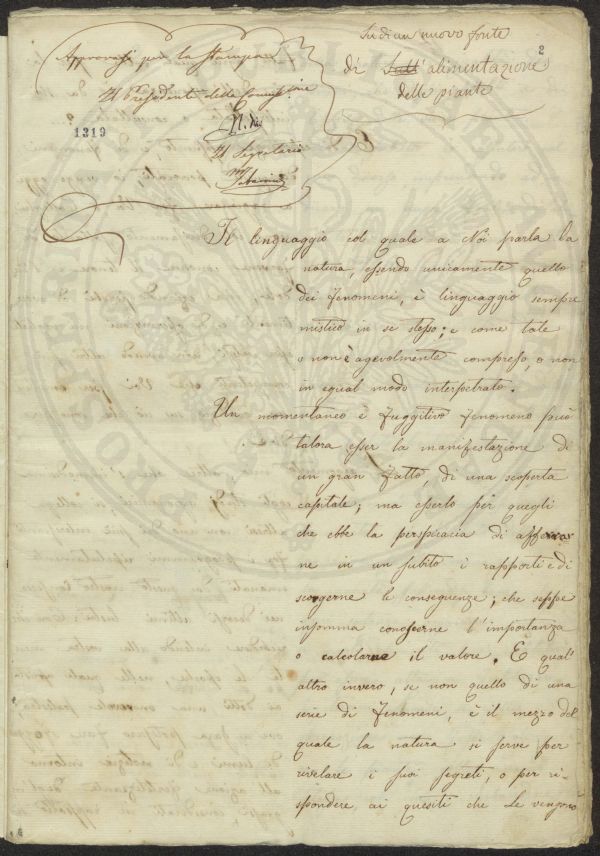 Approvasi per la stampa
Il Presidente della Commissione
Il Segretario
1319
2
Su di un nuovo fonte
di sull' alimentazione
delle piante
Il linguaggio col quale a Noi parla la
natura, essendo unicamente quello
dei fenomeni, è linguaggio sempre
mistico in se stesso; e come tale
o non è agevolmente compreso, o non
in egual modo interpetrato.
Un momentaneo è fuggitivo fenomeno può
talora esser la manifestazione di
un gran fatto, di una scoperta
capitale; ma esserlo per quegli
che ebbe la perspicacia di afferrar
ne in un subito i rapporti e di
scorgerne le conseguenze; che seppe
insomma conoscerne l'importanza
o calcolarne il valore. E qual'
altro invero, se non quello di una
serie di fenomeni, è il mezzo del
quale la natura si serve per
rivelare i suoi segreti, o per ri-
spondere ai quesiti che le vengono